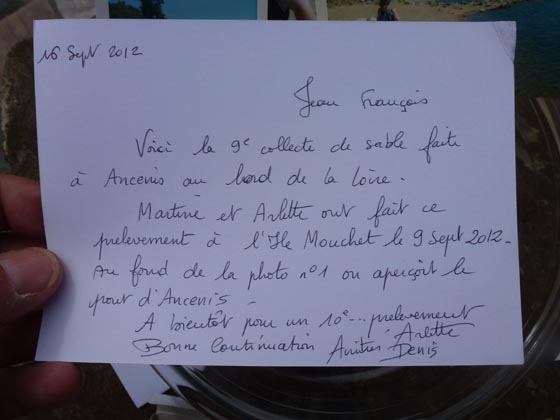 16 Sept 2012
Jean François
Voici la 9e collecte de sable faite
à Ancenis au bord de la Loire.
Martine et Arlette ont fait ce
prelevement à l'Ile Mouchet le 9 Sept 2012-
Au fond de la photo n°1 on aperçoit le
pont d'Ancenis.
A bientôt pour un 10e... prelevement
Bonne Continuation Amitiés Arlette
Denis